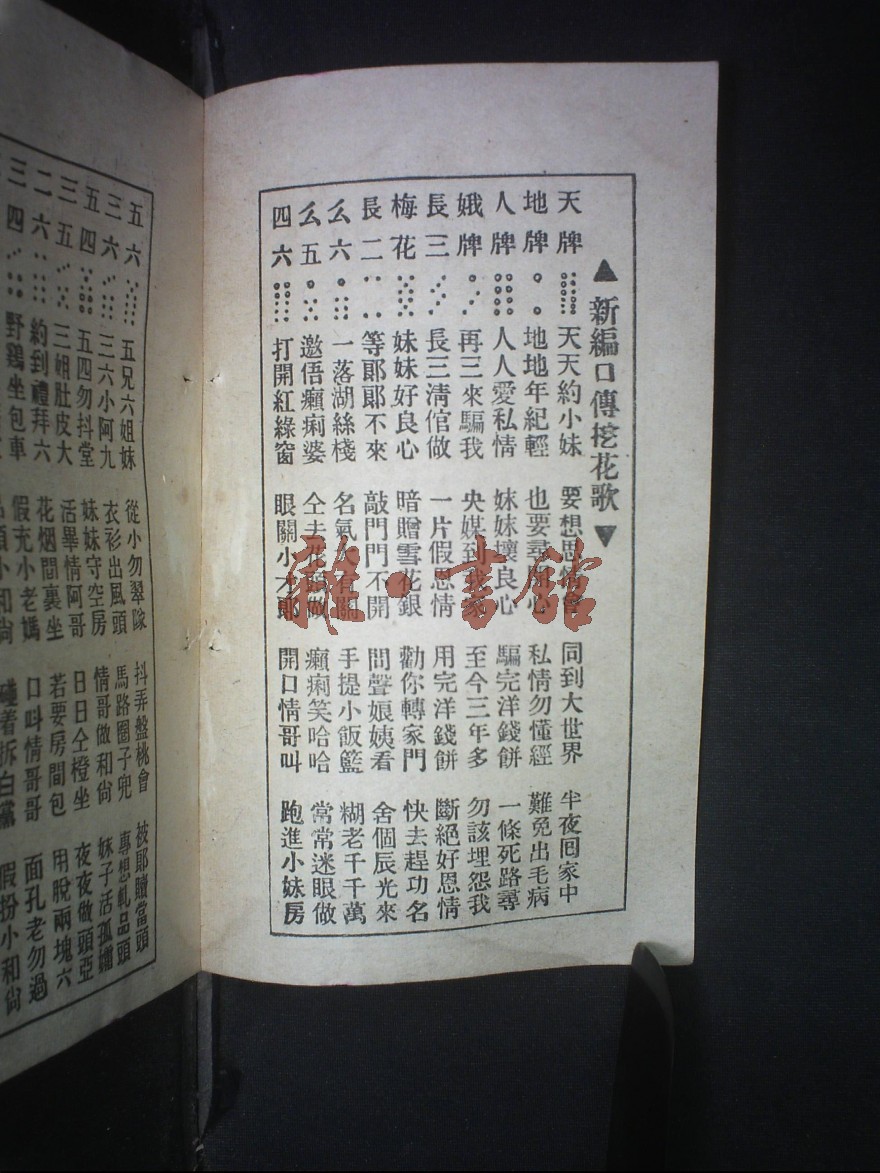 ▲新編口傳挖花歌▼
天牌 天天約小妹 要想思情會 同到大世界 半夜囘家中
地牌 地地年紀輕 也要尋開心 私情勿懂經 難免出毛病
人牌 人人愛私情 妹妹壞良心 騙完洋錢餅 一條死路尋
娥牌 再三來騙我 央媒到我家 至今三年多 勿該埋怨我
長三 長三淸倌做 一片假恩情 用完洋錢餅 斷絕好恩情
梅花 妹妹好良心 暗贈雪花銀 勸你轉家門 快去趕功名
長二 等郞郞不來 敲門門不開 問聲娘姨看 舍個辰光來
么六 一落湖絲棧 名氣 有關 手提小飯籃 糊老千千萬
么五 邀倍癩痢婆 仝去花 做 癩痢笑哈哈 常常迷眼做
四六 打開紅綠窗 眼關小才郞 開口情哥叫 跑進小妹房
五六 五兄六姐妹 從小勿翠 抖弄盤桃會 被郞贖當頭
三六 三六小阿九 衣衫出風頭 馬路圈子兜 專想軋品頭
五四 五四勿抖堂 妹妹守空房 情哥做和尙 妹子活孤孀
三五 三姐肚皮大 活畢情阿哥 日日仝橙坐 夜夜做頭亞
二六 約到禮拜六 花烟間裏坐 若要房間包 用脫兩塊六
三四 野鷄坐包車 假充小老媽 口叫情哥哥 面孔老勿過
小和尙 碰着拆白黨 假扮小和尙
雜·書館